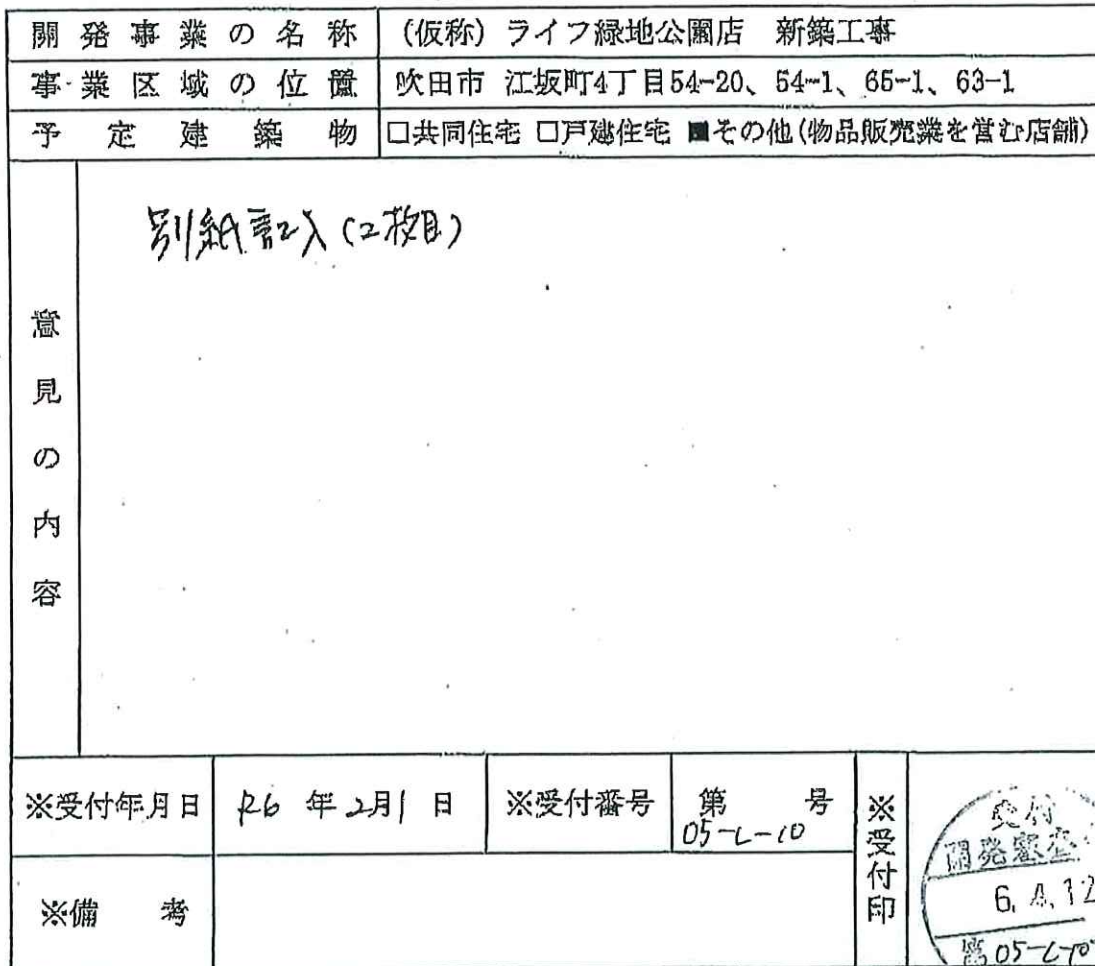 開発事業の名称 (仮称)ライフ緑地公園店 新築工事
事業区域の位置 吹田市 江坂町4丁目54-20、54-1、65-1、63-1
予定建築物 □共同住宅 □戸建住宅 ■その他(物品販売業を営む店舗)
意見の内容
別紙記入(2枚目)
※受付年月日 R6 年 2月1 日 ※受付番号 第 号
05-L-10
※受付印
受付
開発審査
6.4.12
第05-L-10
※備 考